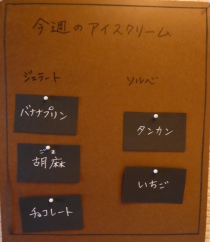 今週のアイスクリーム
ジェラート
バナナプリン
ごま
胡麻
チョコレート
ソルベ
タンカン
いちご